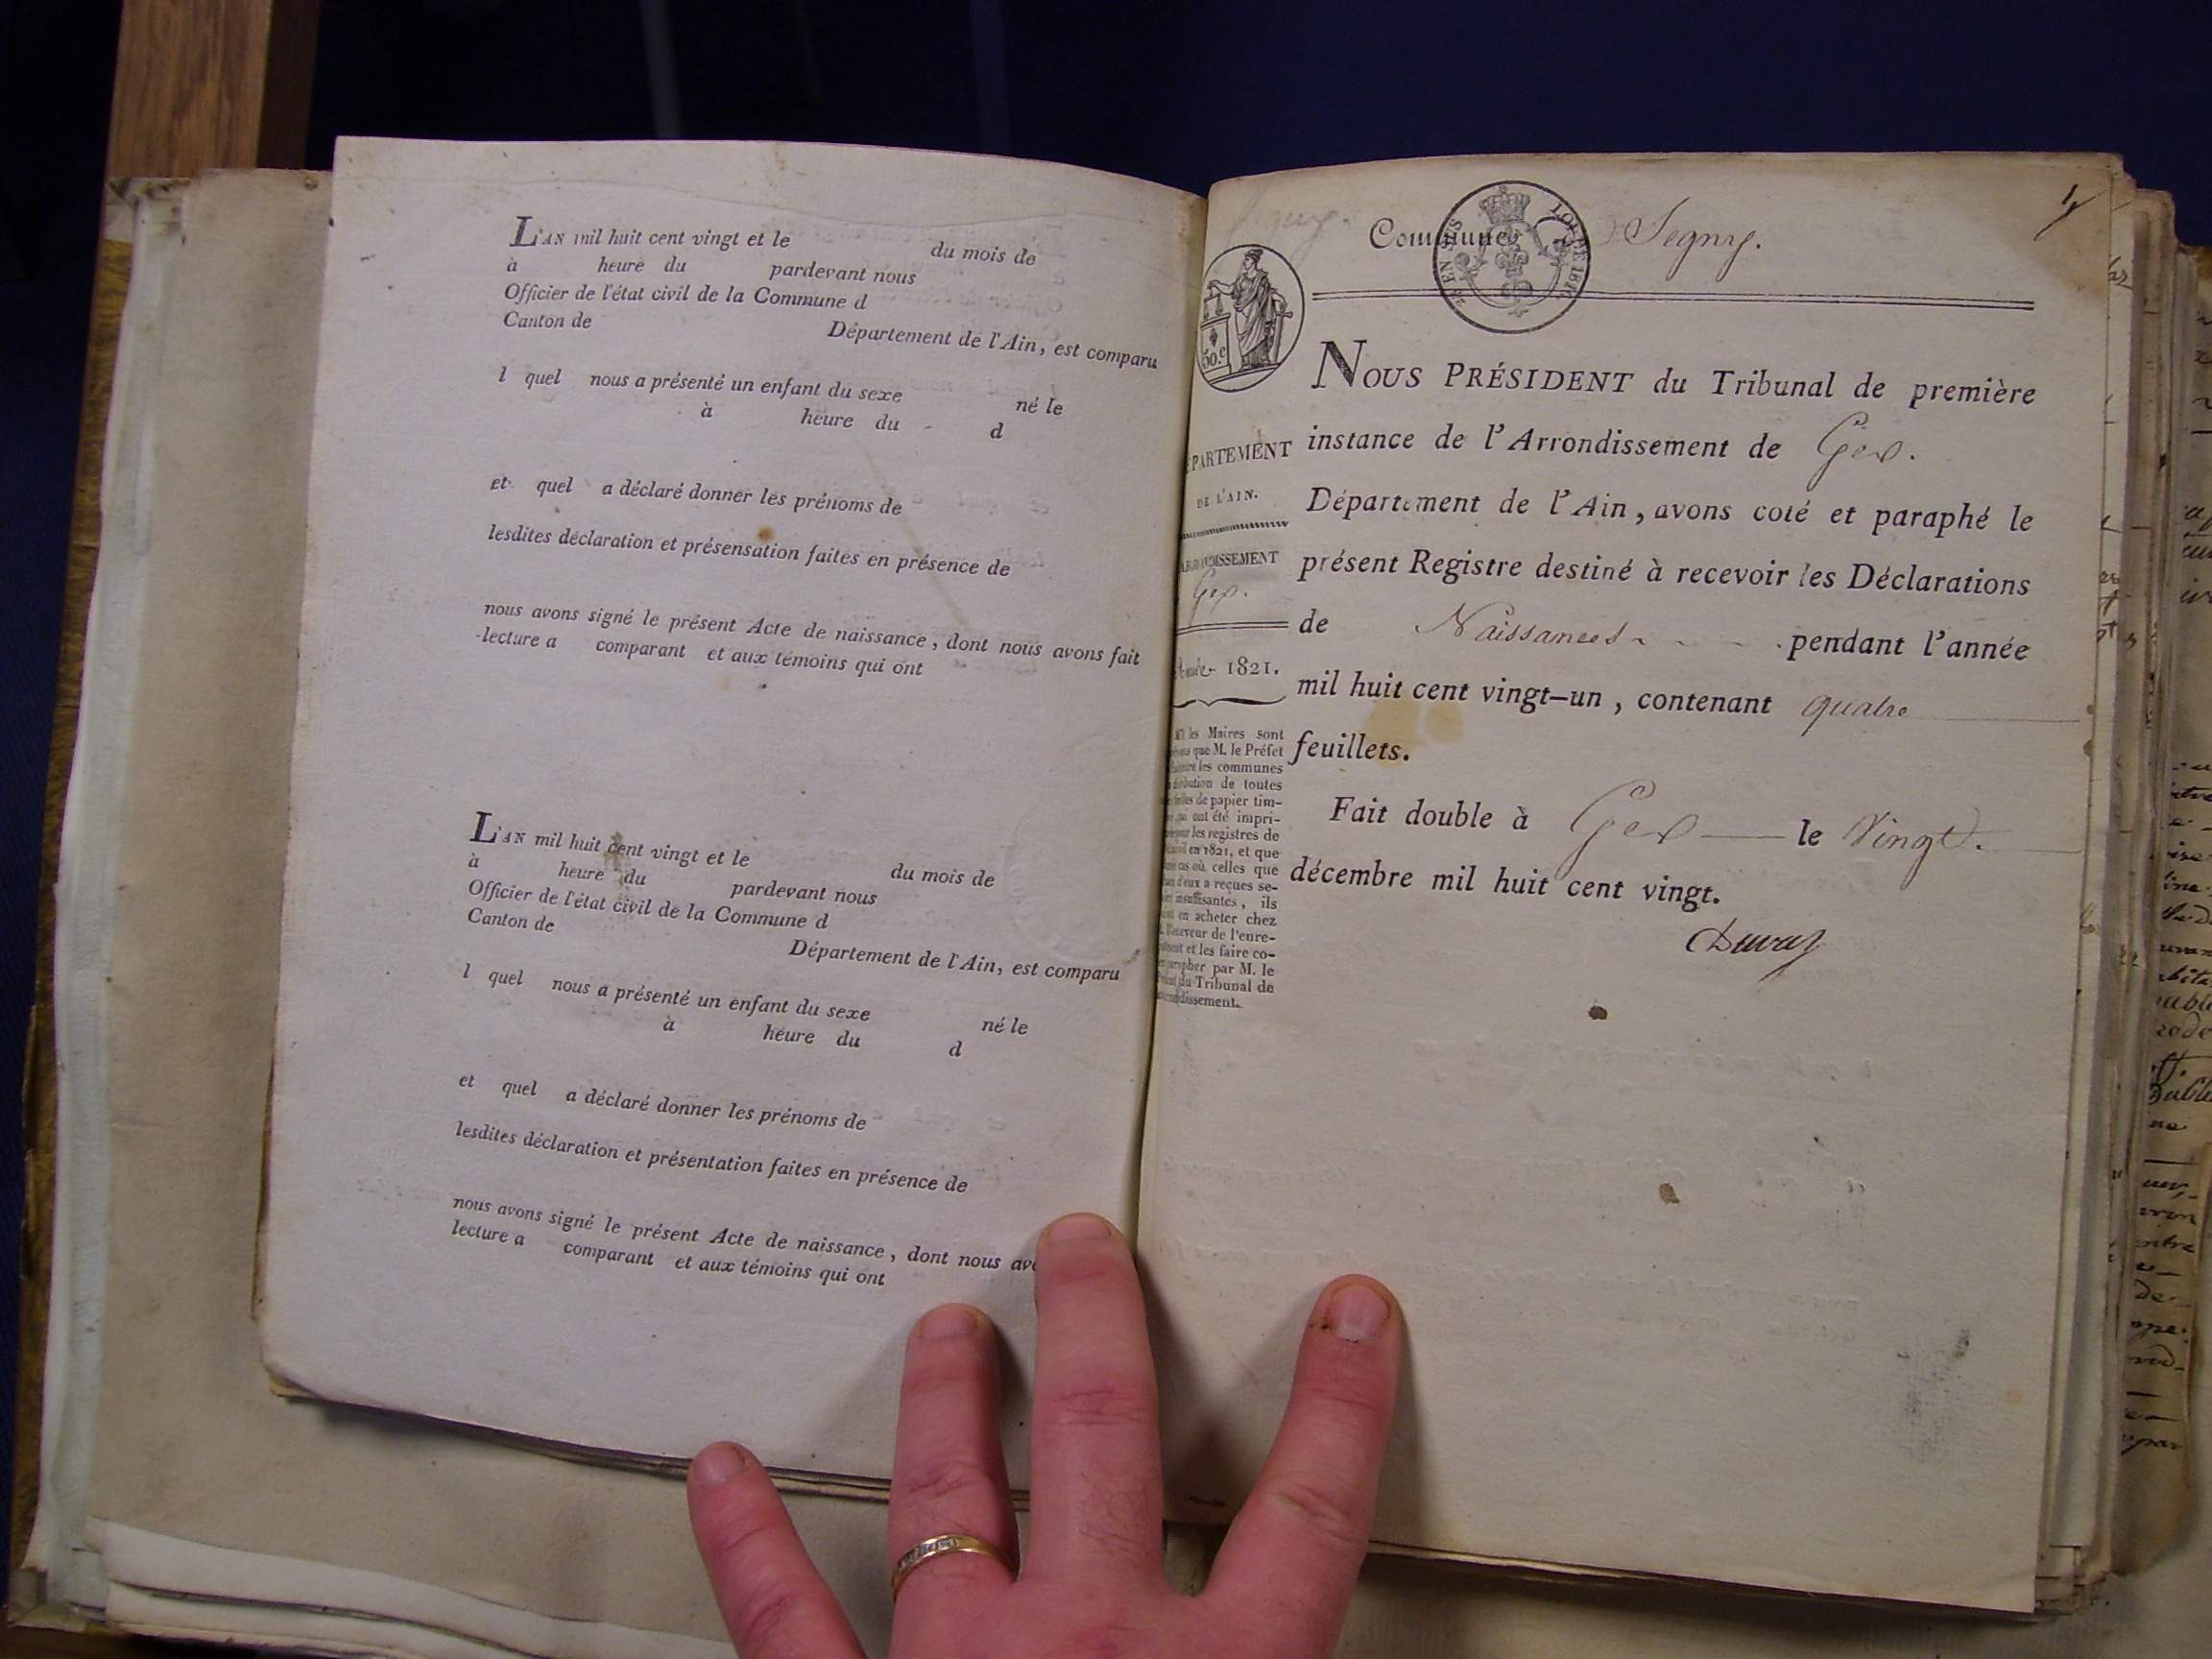 L'AN mil huit cent vingt et le du mois de
à heure du pardevant nous
Officier de l'état civil de la Commune d
Canton de Département de l'Ain, est comparu
l quel nous a présenté un enfant du sexe né le
à heure du d
et quel a déclaré donner les prénoms de
lesdites déclaration et présensation faites en présence de
nous avons signé le présent Acte de naissance, dont nous avons fait
lecture a comparant et aux témoins qui ont
L'AN mil huit cent vingt et le du mois de
à heure du pardevant nous
Officier de l'état civil de la Commune d
Canton de Département de l'Ain, est comparu
l quel nous a présenté un enfant du sexe né le
à heure du d
et quel a déclaré donner les prénoms de
lesdites déclaration et présentation faites en présence de
nous avons signé le présent Acte de naissance, dont nous
lecture a comparant et aux témoins qui ont
Commune Segny.
50.c
NOUS PRÉSIDENT du Tribunal de première
instance de l'Arrondissement de Gex.
Département de l'Ain, avons coté et paraphé le
présent Registre destiné à recevoir les Déclarations
de Naissances pendant l'année
mil huit cent vingt-un, contenant quatre
feuillets.
Fait double à Gex le Vingt.
décembre mil huit cent vingt.
Duval
PARTEMENT
DE L'AIN.
DISSEMENT
Gex.
1821.
les Maires sont
que M. le Préfet
les communes
de toutes
de papier tim-
ont été impri-
les registres de
en 1821, et que
cas où celles que
d'eux a reçues se-
insuffisantes, ils
en acheter chez
de l'enre-
et les faire co-
par M. le
du Tribunal de
dissement.